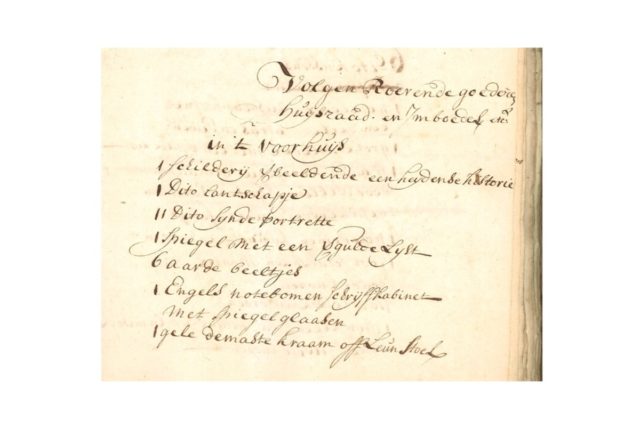 Volgen Roerende goederen
Huysraad en Jmboedel etc
in 't voorhuys
1 schilderij verbeeldende een heydense historie
1 Dito lantschapje
11 Dito synde portrette
1 spiegel met een vergulde Lyst
6 aarde beeltjes
1 Engels notebomen schryffkabinet
met spiegel glaasen
1 gele demaste kraam off Leun Stoel